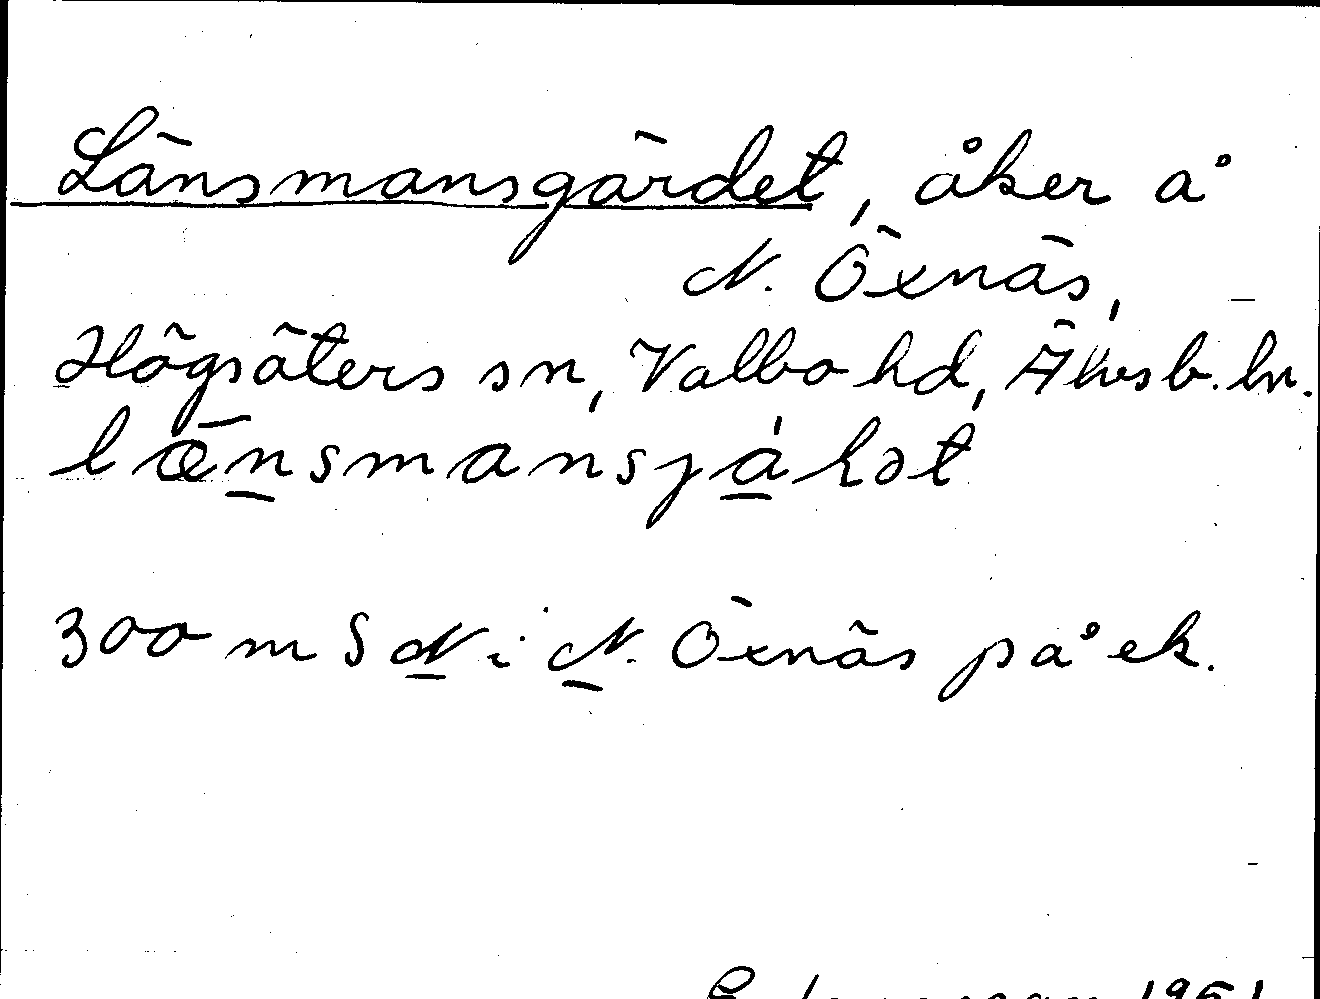 Länsmansgärdet, åker å
N. Öxnäs,
Högsäters sn, Valbo hd, Älvsb. ln.
lænsmansjáḷət
300 m S N i N. Öxnäs på ek.